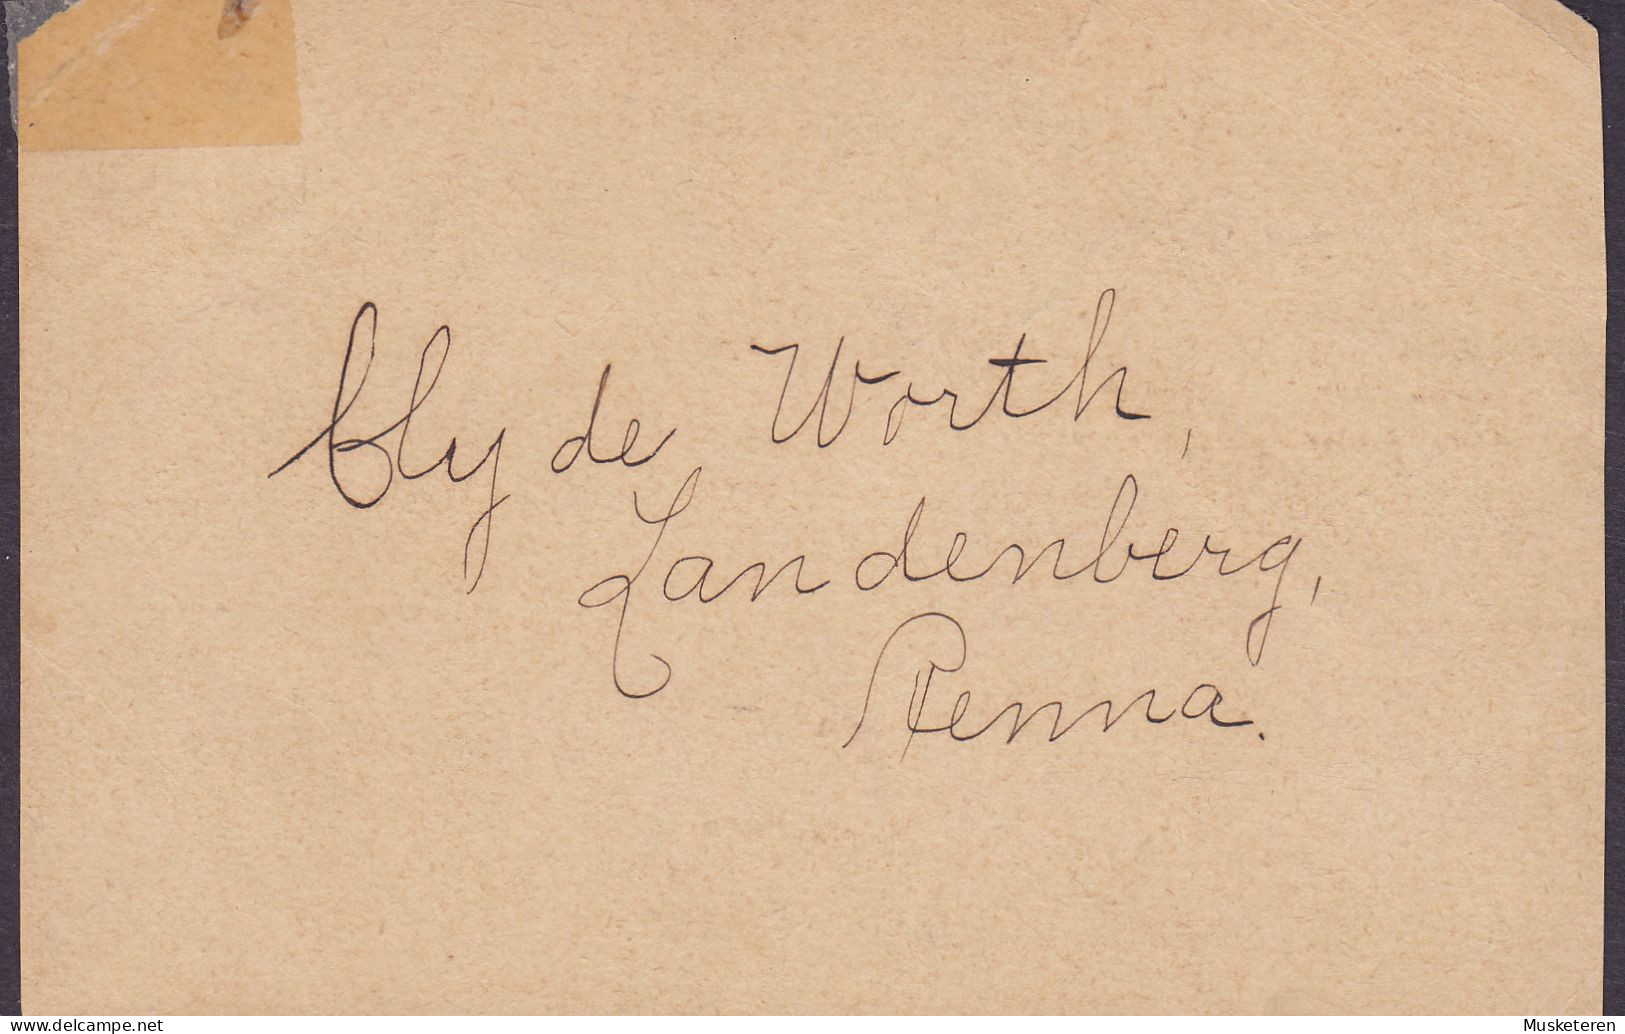 Clyde Worth,
Landenberg,
Penna.
www.delcampe.net
Musketeren